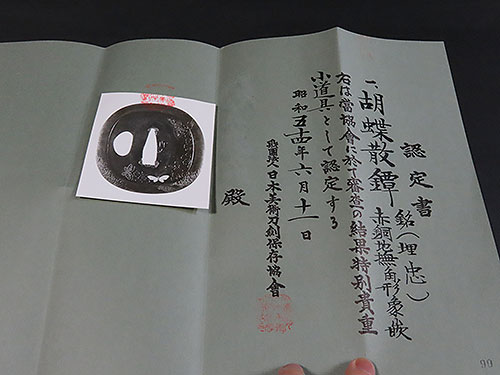 認定書
一、胡蝶散鐔 銘(埋忠)
赤銅地撫角形象嵌
右は當協會に於て審査の結果特別貴重
小道具として認定する
昭和五十年六月十一日
財團法人日本美術刀剣保存協會
殿
99